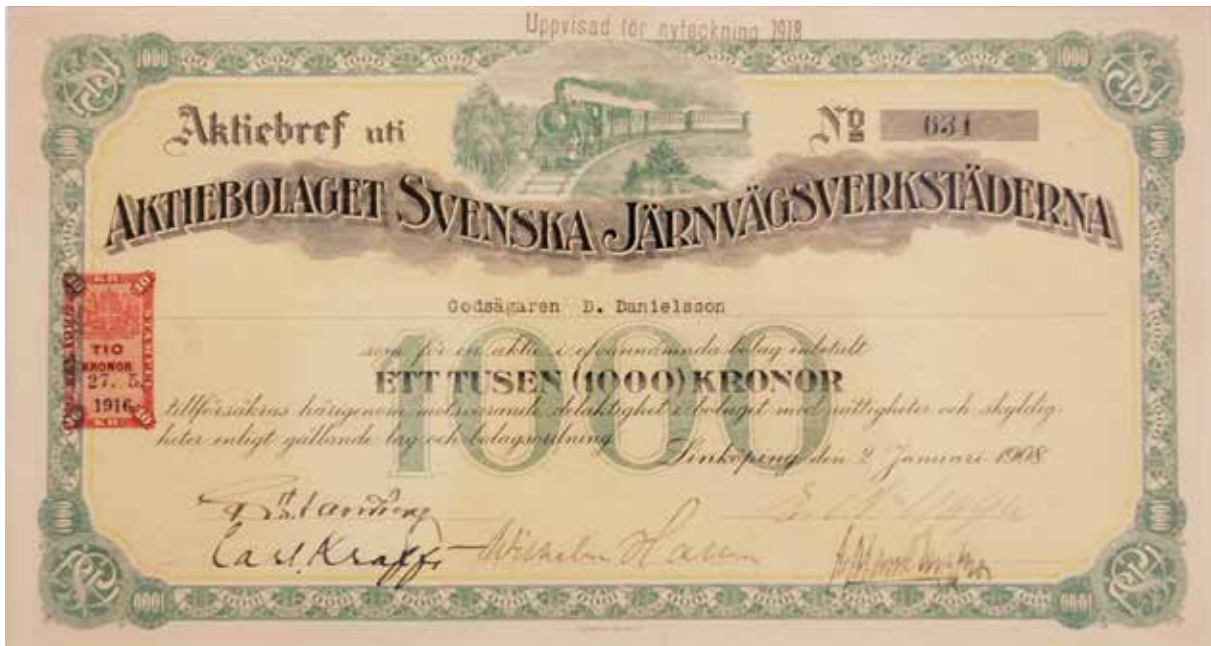 Uppvisad för nyteckning 1918
1000 1000
Aktiebref uti
No 631
AKTIEBOLAGET SVENSKA JÄRNVÄGSVERKSTÄDERNA
Godsägaren D. Danielsson
som för en aktie i ofvannämnda bolag inbetalt
1000
ETT TUSEN (1000) KRONOR
tillförsäkras härigenom motsvarande delaktighet i bolaget med rättigheter och skyldig-
heter enligt gällande lag och bolagsordning.
Linköping den 2 Januari 1908
10 10
TIO
KRONOR
27. 5.
1916
Carl Krafft Wilhelm
1000 1000